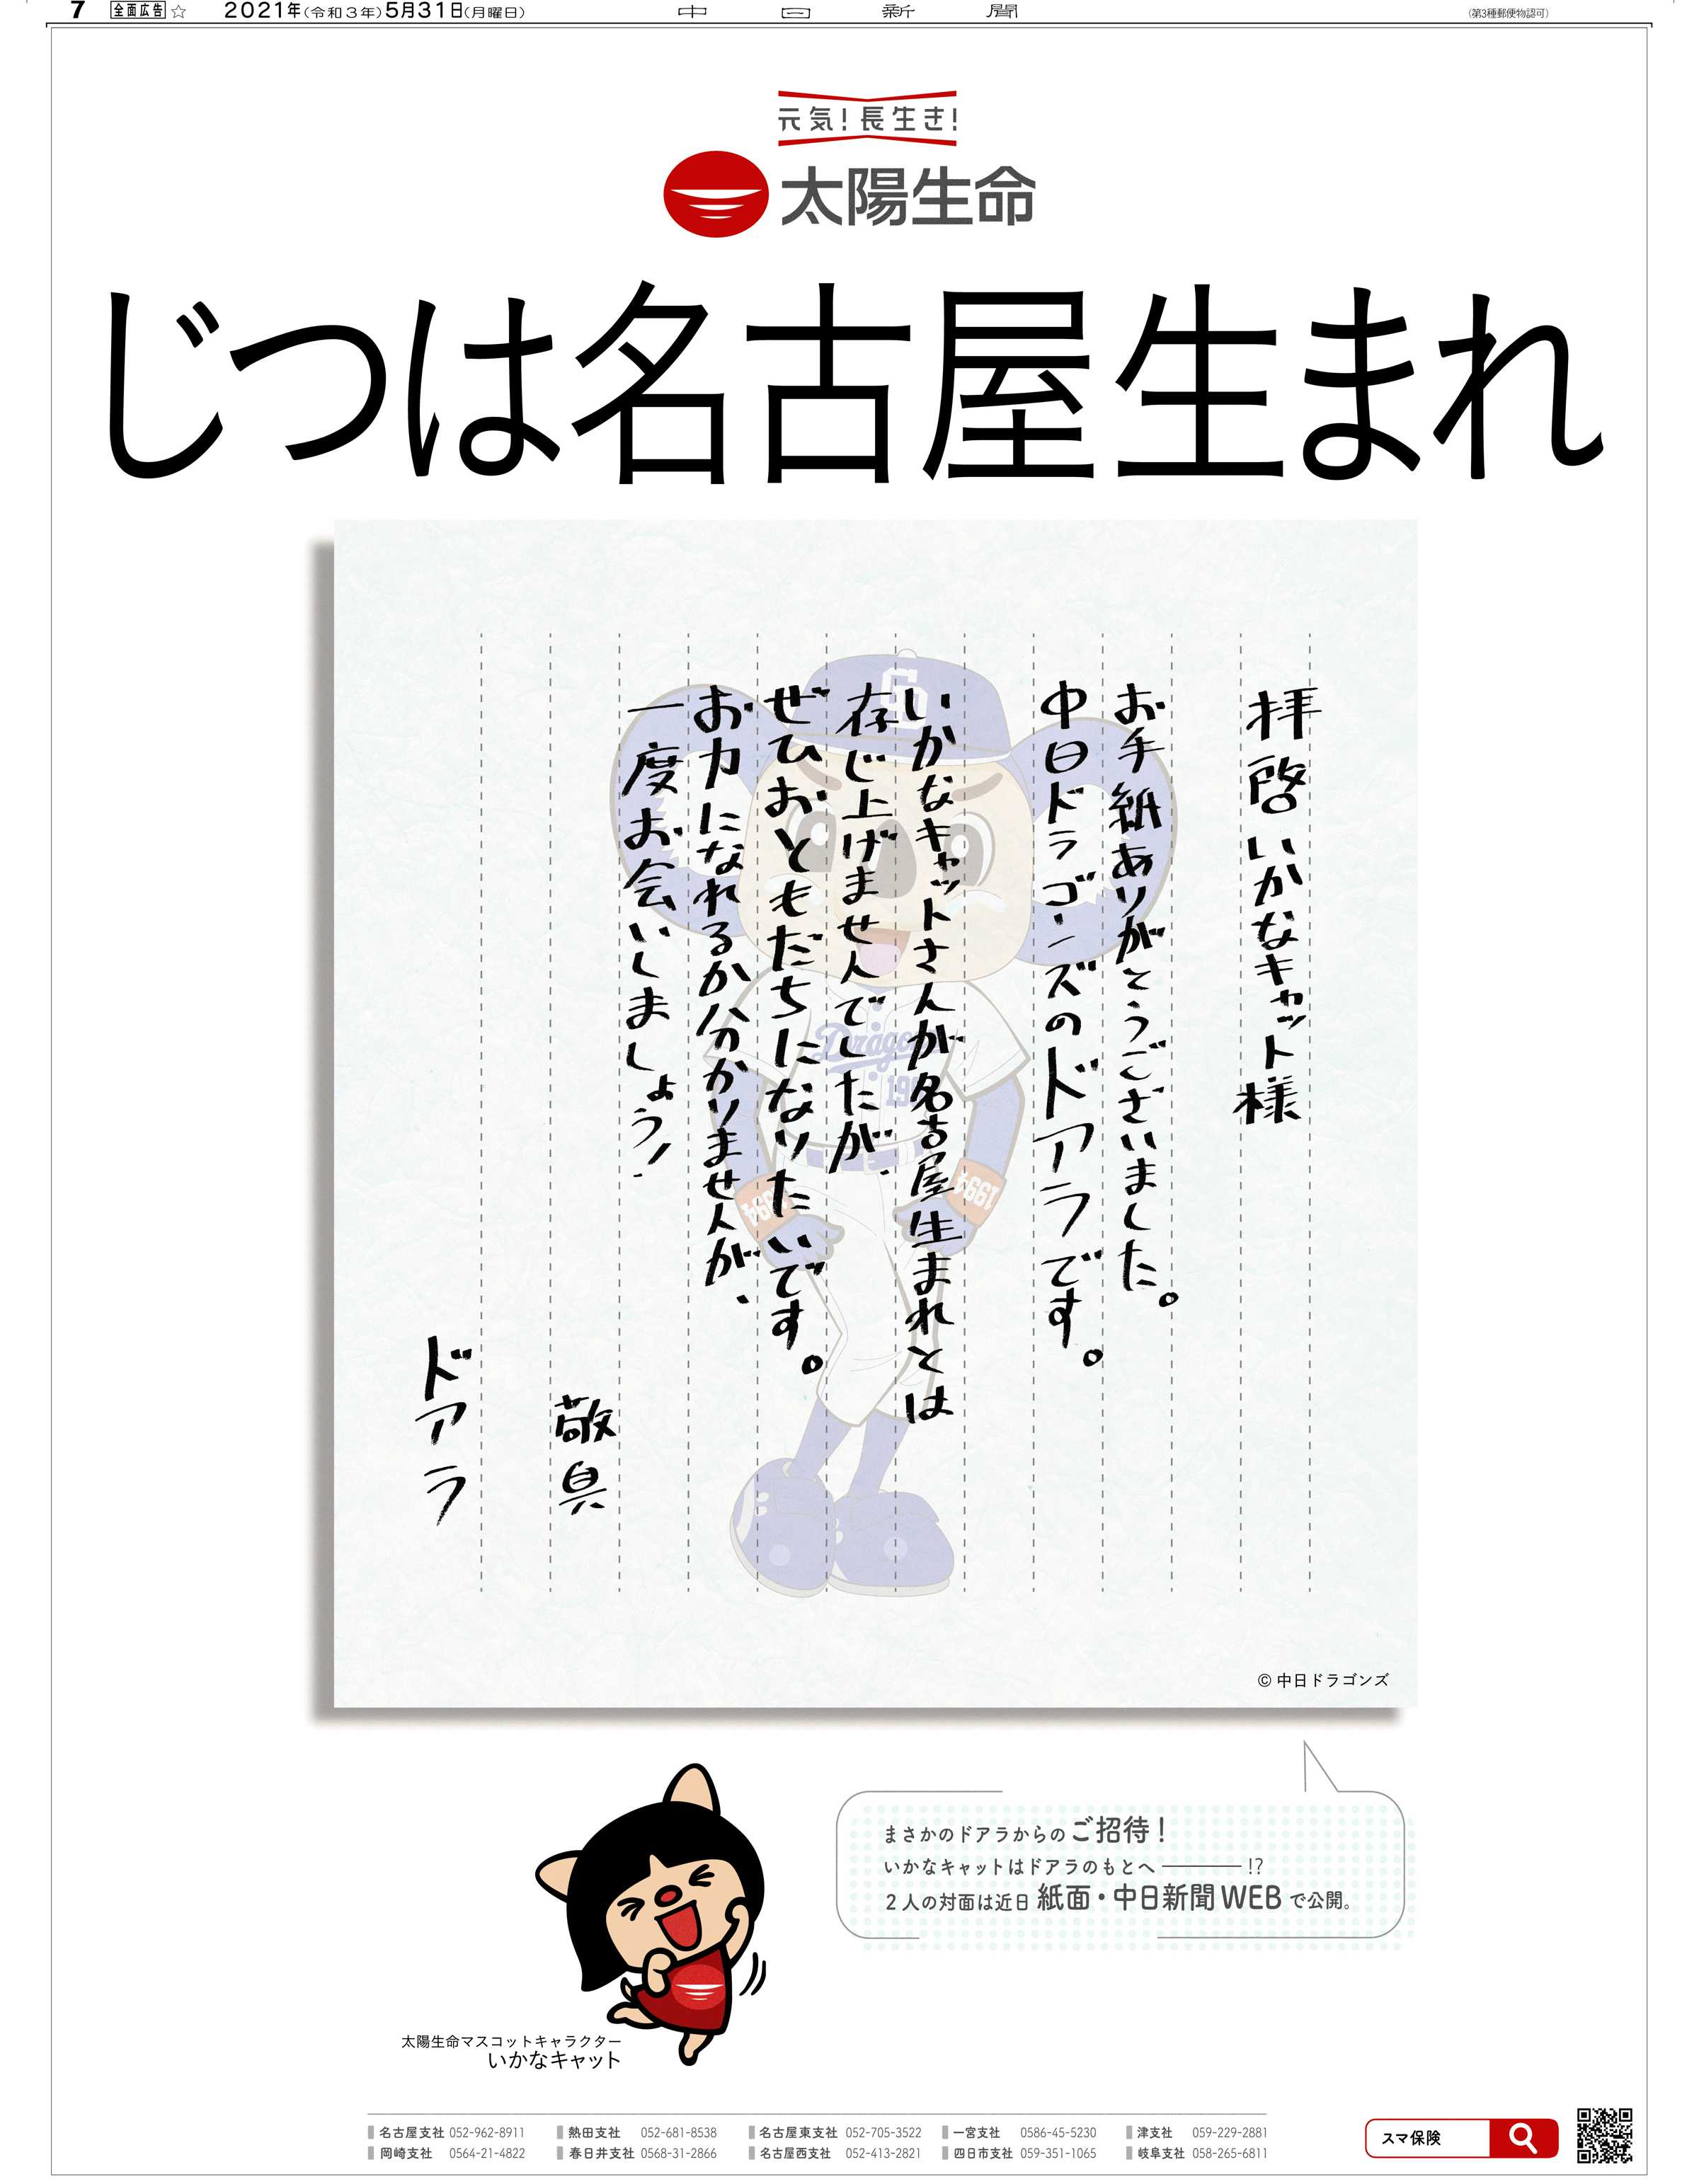 7 全面広告 ☆ 2021年(令和3年)5月31日(月曜日) 中日新聞 (第3種郵便物認可)
元気!長生き!
太陽生命
じつは名古屋生まれ
拝啓 いかなキャット様
お手紙ありがとうございました。
中日ドラゴンズのドアラです。
いかなキャットさんが名古屋生まれとは
存じ上げませんでしたが、
ぜひおともだちになりたいです。
お力になれるか分かりませんが、
一度お会いしましょう!
敬具
ドアラ
CD
Dragons
1994
1994
©中日ドラゴンズ
まさかのドアラからのご招待!
いかなキャットはドアラのもとへ――!?
2人の対面は近日 紙面・中日新聞WEBで公開。
太陽生命マスコットキャラクター
いかなキャット
名古屋支社 052-962-8911 熱田支社 052-681-8538 名古屋東支社 052-705-3522 一宮支社 0586-45-5230 津支社 059-229-2881
岡崎支社 0564-21-4822 春日井支社 0568-31-2866 名古屋西支社 052-413-2821 四日市支社 059-351-1065 岐阜支社 058-265-6811
スマ保険